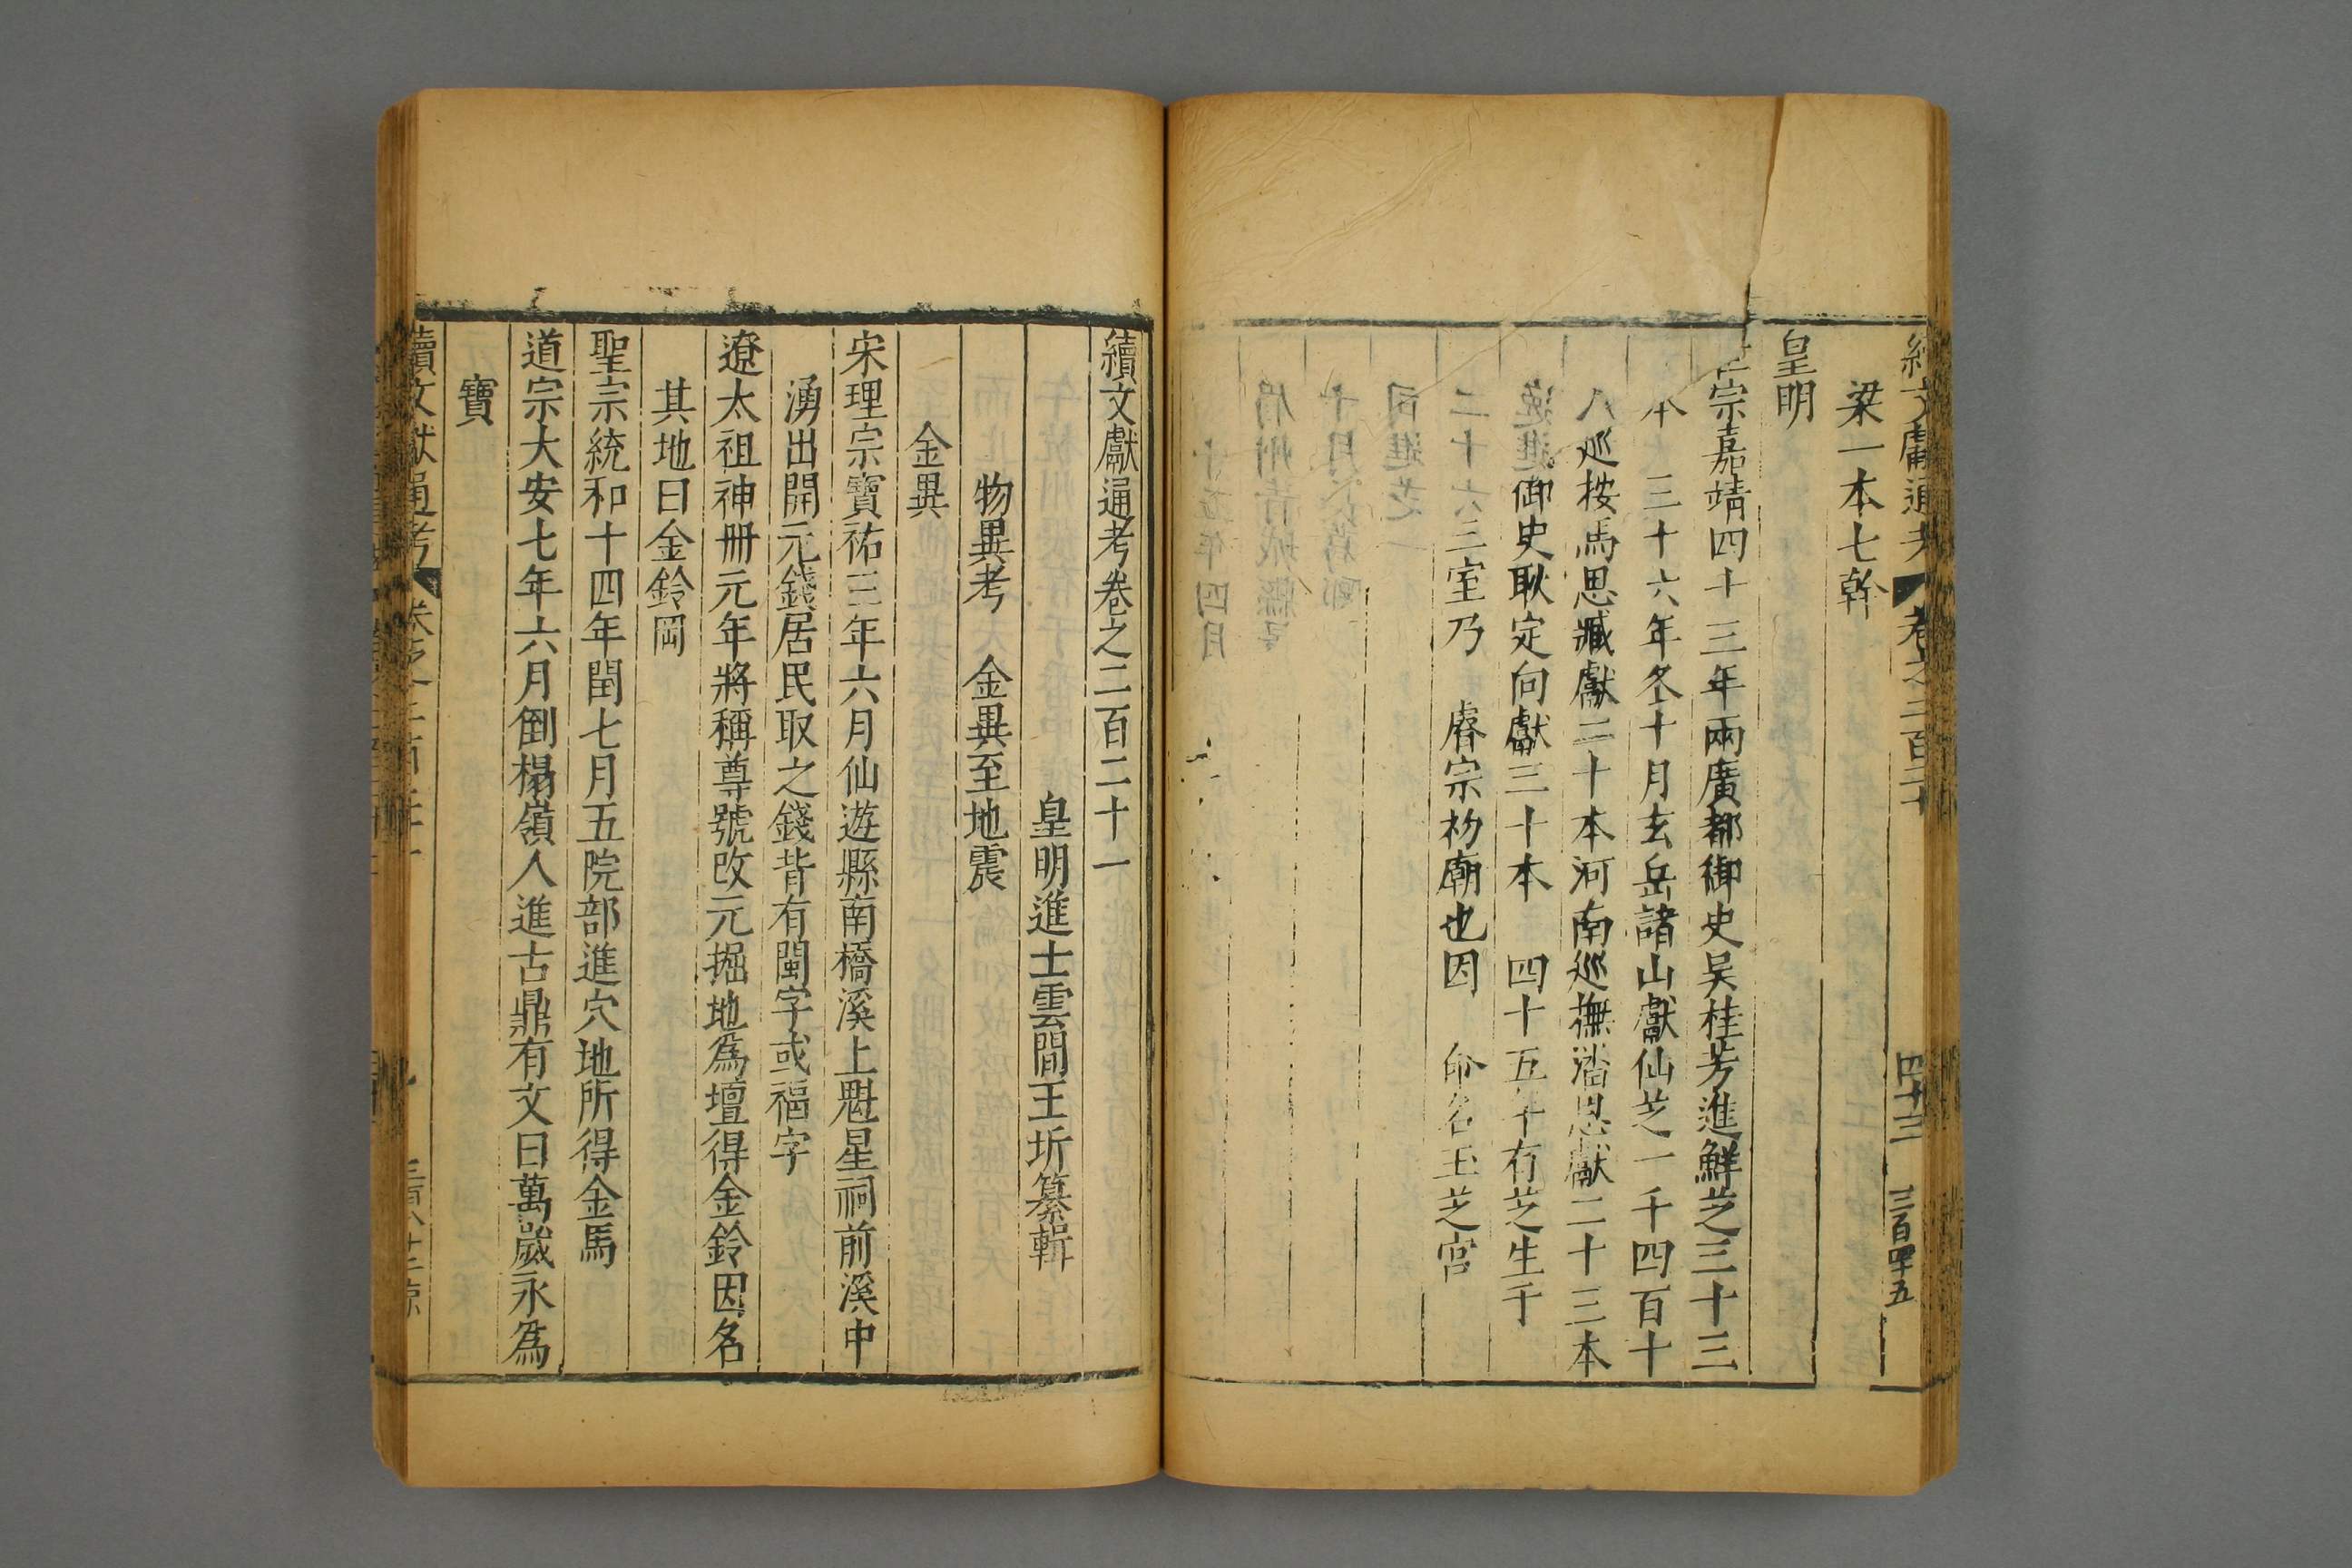 梁一本七幹
皇明
宗嘉靖四十三年兩廣都御史吴桂芳進鮮芝三十三
本　三十六年冬十月玄岳諸山獻仙芝一千四百十
八　巡按馬思臧獻二十本河南巡撫潘恩獻二十三本
御史耿定向獻三十本　四十五年有芝生于
三室乃　睿宗礿廟也因　命名玉芝宮
四十三
三百四十五
續文獻通考卷之二百二十一
皇明進士雲間王圻纂輯
物異考　金異至地震
金異
宋理宗寶祐三年六月仙遊縣南橋溪上魁星祠前溪中
湧出開元錢居民取之錢背有閩字或福字
遼太祖神冊元年將稱尊號改元掘地為壇得金鈴因名
其地曰金鈴岡
聖宗統和十四年閏七月五院部進穴地所得金馬
道宗大安七年六月倒榻嶺人進古鼎有文曰萬歲永為
寶
續文獻通考